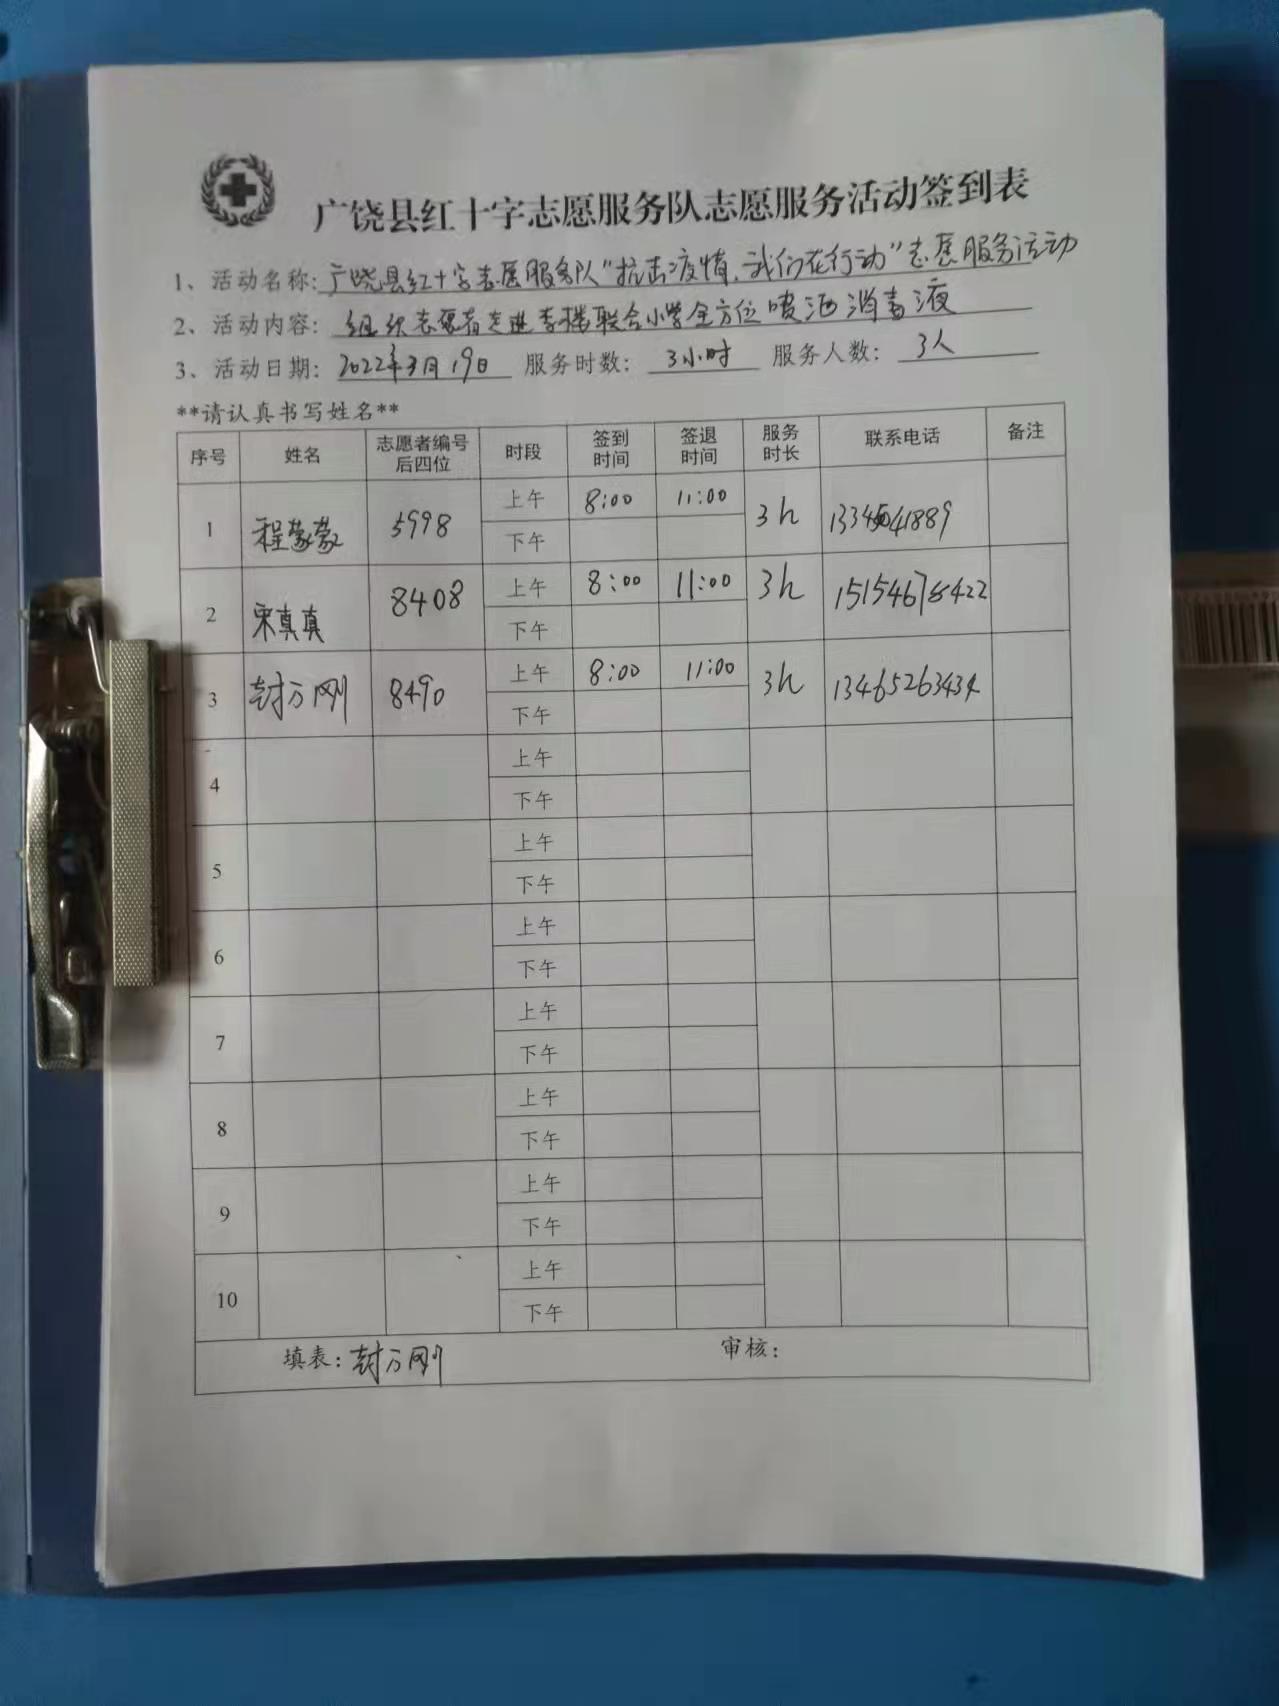 广饶县红十字志愿服务队志愿服务活动签到表
1、活动名称：广饶县红十字志愿服务队“抗击疫情，我们在行动”志愿服务活动
2、活动内容：组织志愿者走进李楼联合小学全方位喷洒消毒液
3、活动日期：2022年3月19日 服务时数：3小时 服务人数：3人
**请认真书写姓名**
序号 姓名 志愿者编号后四位 时段 签到时间 签退时间 服务时长 联系电话 备注
1 程蒙蒙 5998 上午 8:00 11:00 3h
下午
2 宋真真 8408 上午 8:00 11:00 3h 15154678422
下午
3 封万刚 8490 上午 8:00 11:00 3h 13465263434
下午
4 上午
下午
5 上午
下午
6 上午
下午
7 上午
下午
8 上午
下午
9 上午
下午
10 上午
下午
填表：封万刚 审核：